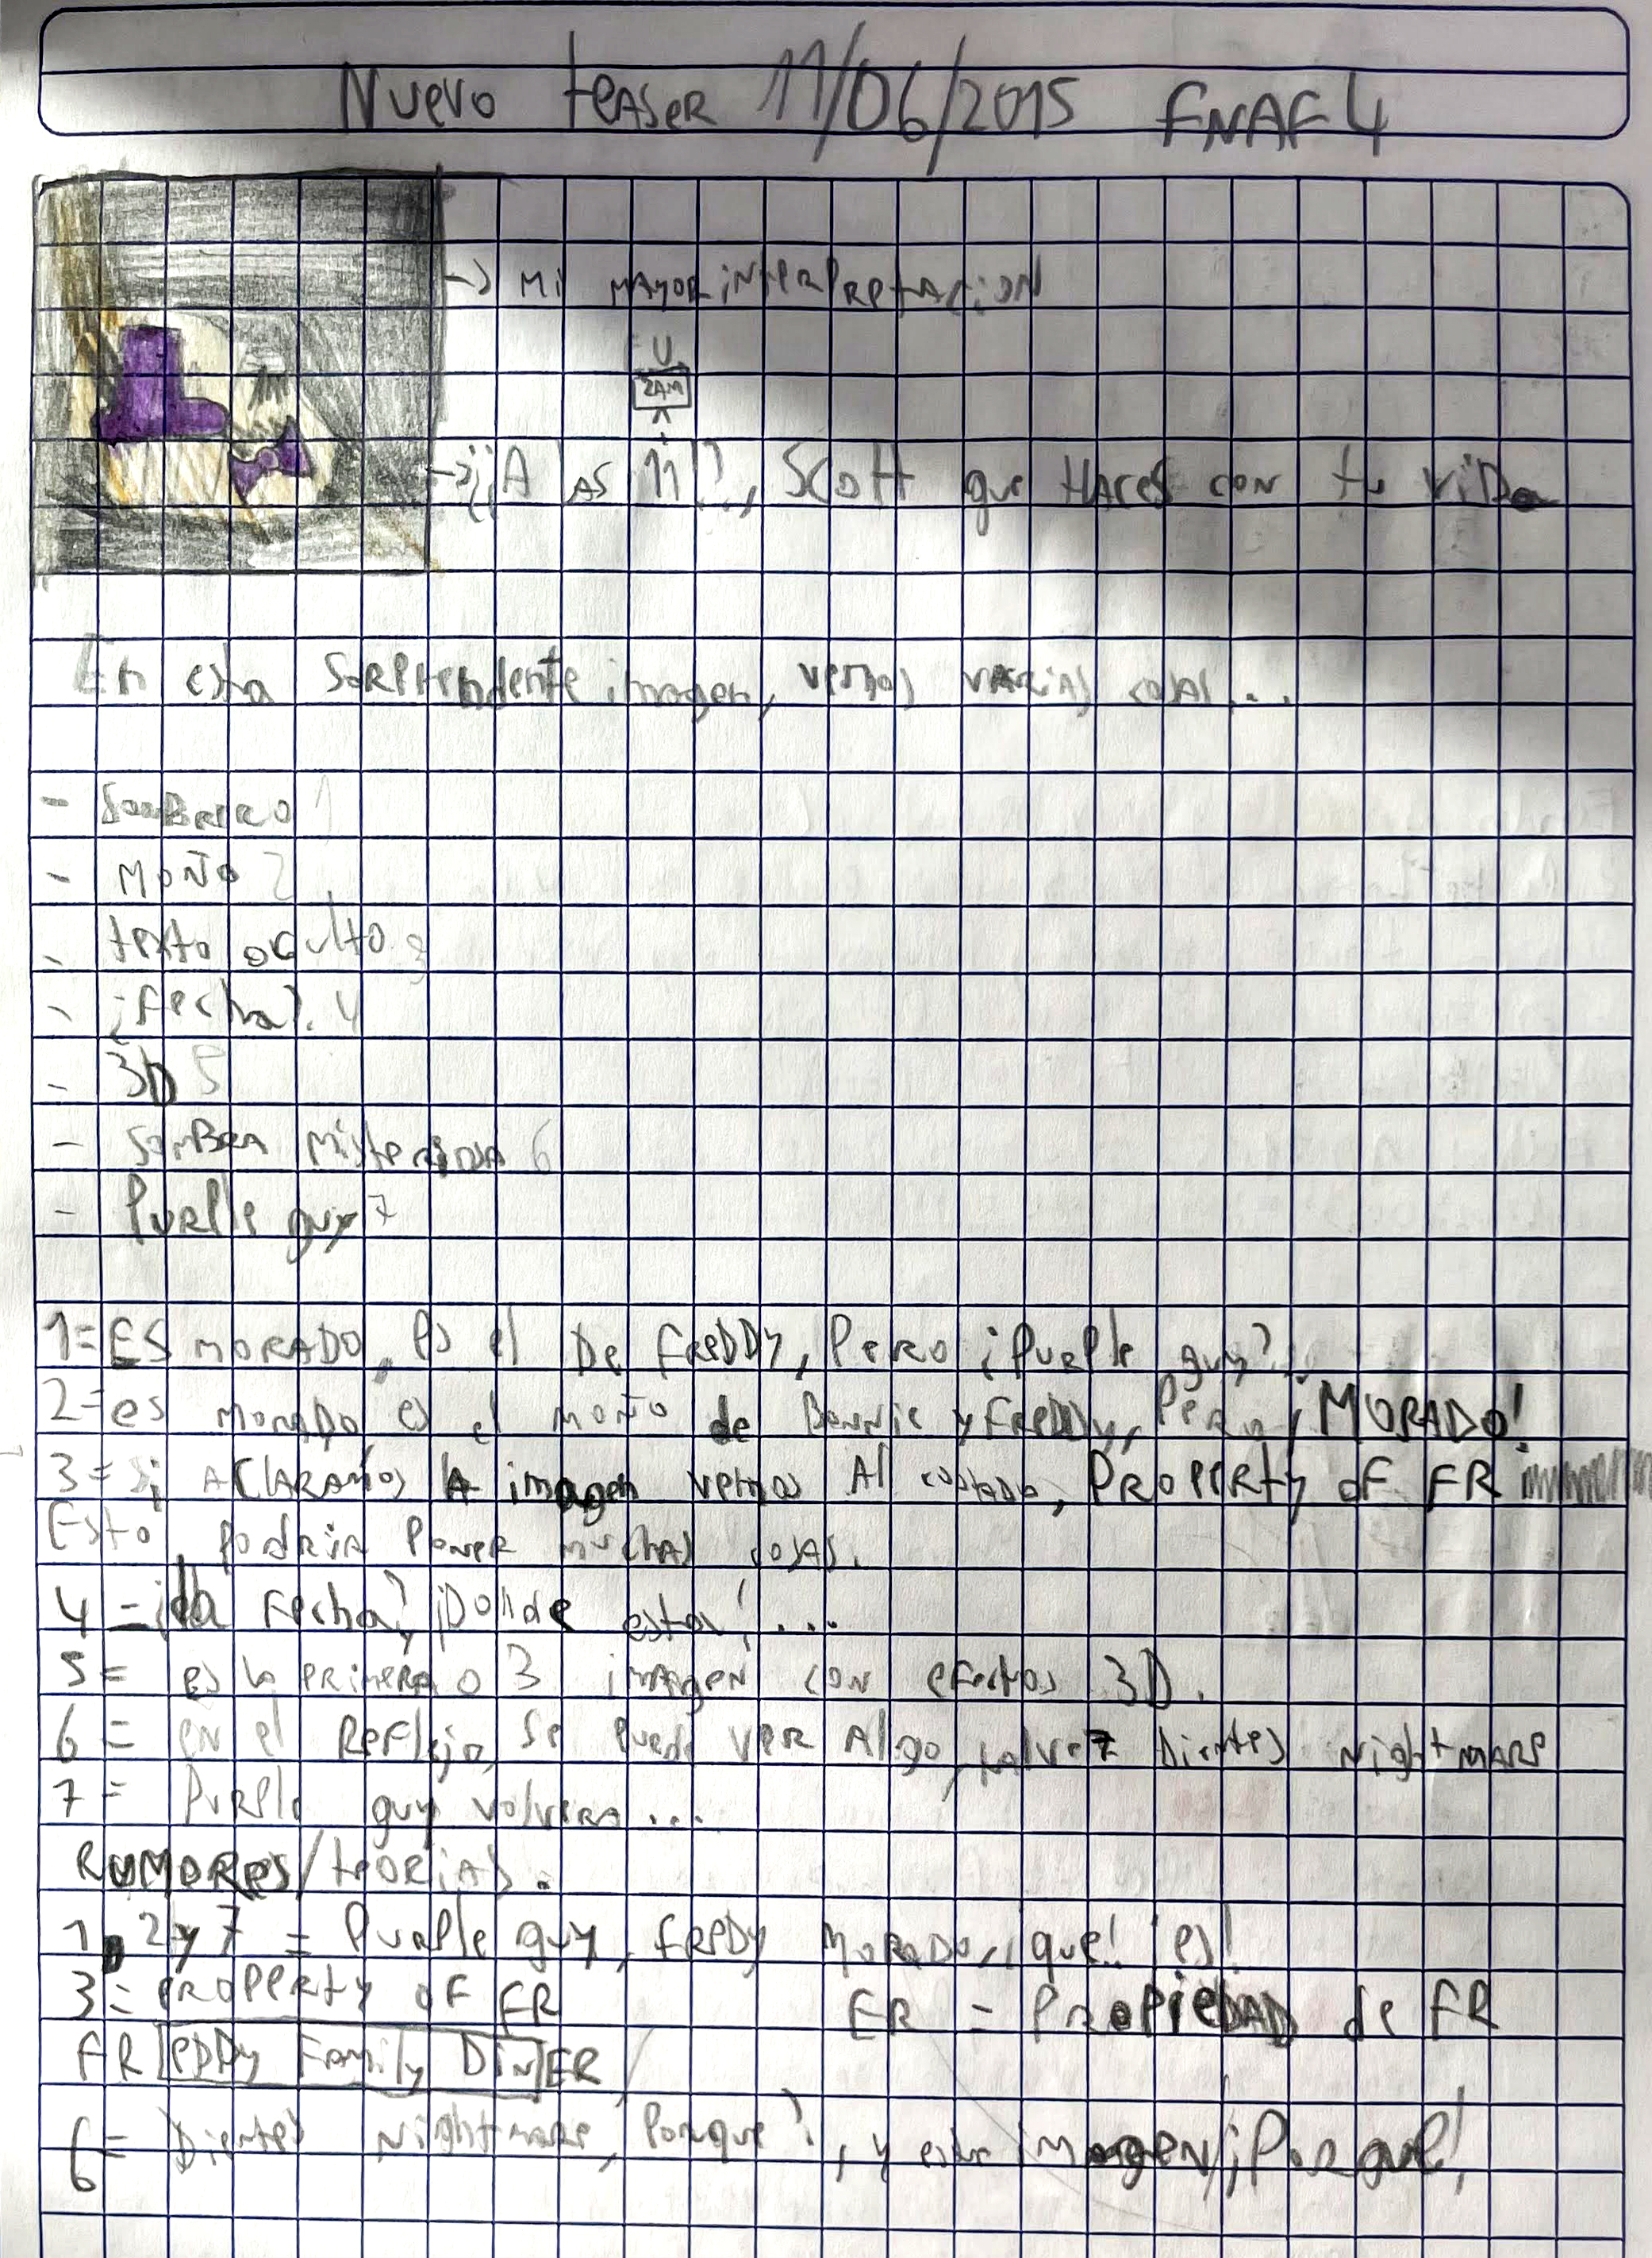 Nuevo teaser 11/06/2015 FNAF 4
-> Mi mayor interpretacion
2AM
-> ¡¿A las 11!?, Scott que Haces con tu vida
En esta sorprendente imagen, vemos varias cosas...
- Sombrero 1
- Moño 2
- texto oculto 3
- ¿fecha? 4
- 3D 5
- Sombra misteriosa 6
- Purple guy 7
1= ES MORADO, es el De FREDDY, Pero ¿Purple guy?...
2= es morado es el moño de Bonnie y Freddy, Pero ¡MORADO!
3= si ACLARAMOS la imagen vemos Al costado, PROPERty oF FR
Esto podria Poner muchas cosas.
4 = ¿la Fecha?, ¡Donde esta!, ...
5 = es la primera o 3 imagen con efectos 3D.
6 = en el Reflejo, se puede ver Algo, talvez Dientes nightmare
7 = Purple guy volvera...
RUMORES/teorias.
1, 2 y 7 = Purple guy, FREDY MORADO, ¡que! ¡es!
3= PROPERty OF FR ER = PROPIEDAD de FR
FREDDy Family DinER
6= Dientes Nightmare, Porque?, y esta imagen, ¡Porque!